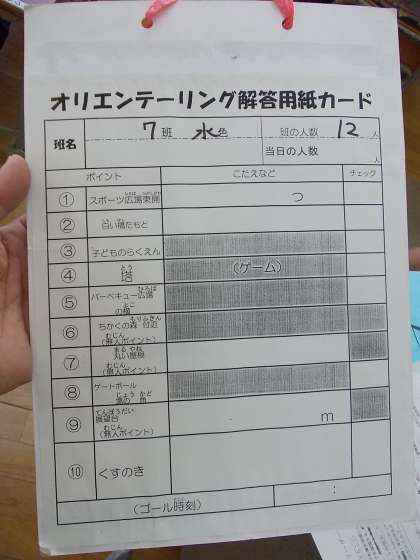 オリエンテーリング解答用紙カード
班名 7班 水色 班の人数 12人
当日の人数 人
ポイント こたえなど チェック
① スポーツ広場東側 つ
② 白い橋たもと
③ 子どものらくえん
④ 塔 (ゲーム)
⑤ バーベキュー広場
の横
⑥ ちかくの森 付近
(無人ポイント)
⑦ 丸い屋根
(無人ポイント)
⑧ ゲートボール
場の角
⑨ 展望台 m
(無人ポイント)
⑩ くすのき
(ゴール時刻) :